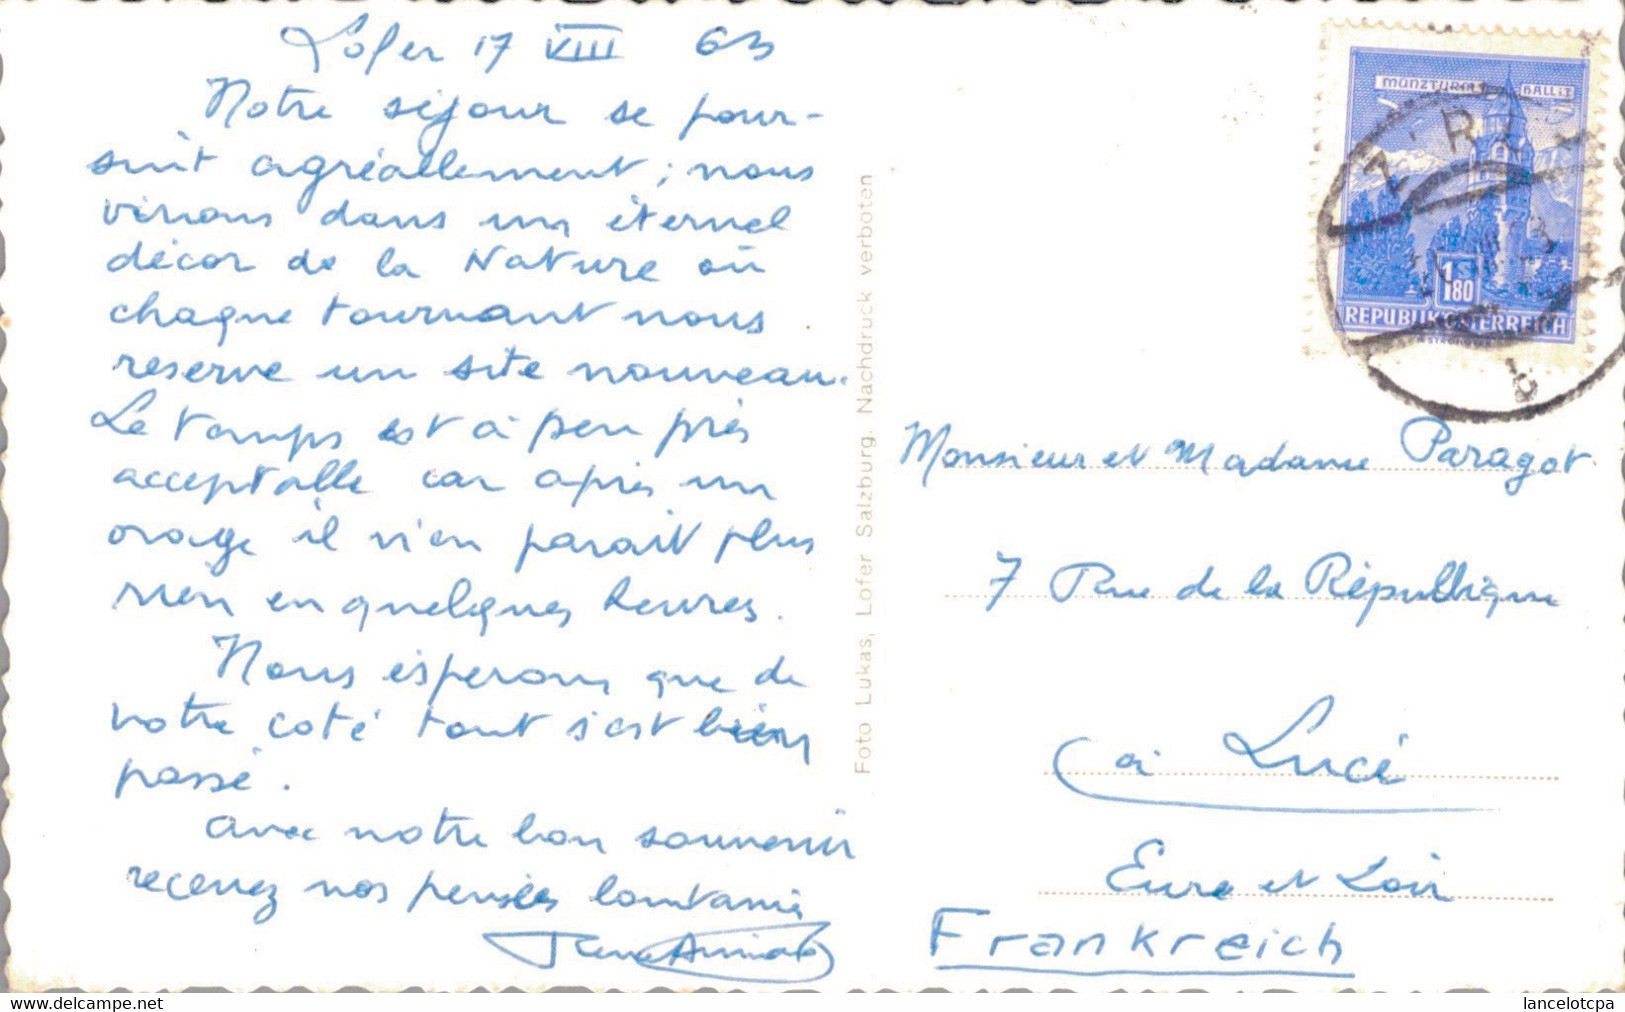 Lofer 17 VIII 63
Notre séjour se pour-
suit agréablement ; nous
vivons dans un éternel
décor de la Nature où
chaque tournant nous
reserve un site nouveau.
Le temps est à peu près
acceptable car après un
orage il n'en parait plus
rien en quelques heures.
Nous espérons que de
votre coté tout s'est bien
passé.
Avec notre bon souvenir
recevez nos pensées lointaines
Foto Lukas, Lofer Salzburg. Nachdruck verboten
MÜNZTURM HALL i.T
1 S 80
REPUBLIK ÖSTERREICH
Monsieur et Madame Paragot
7 Rue de la République
à Lucé
Eure et Loir
Frankreich
www.delcampe.net
lancelotcpa